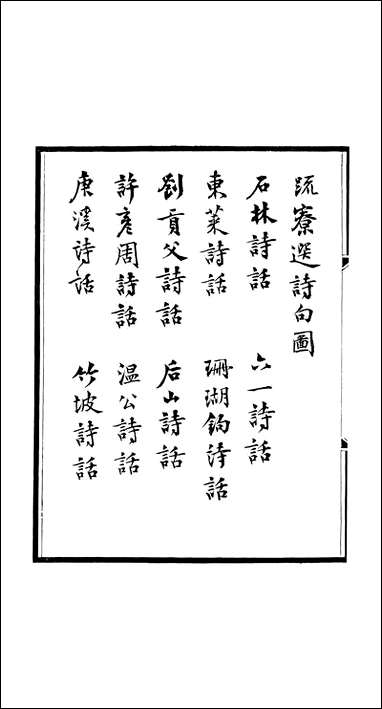 疏寮選詩句圖
石林詩話　六一詩話
東萊詩話　珊瑚鉤詩話
劉貢父詩話　后山詩話
許彥周詩話　温公詩話
庚溪詩話　竹坡詩話